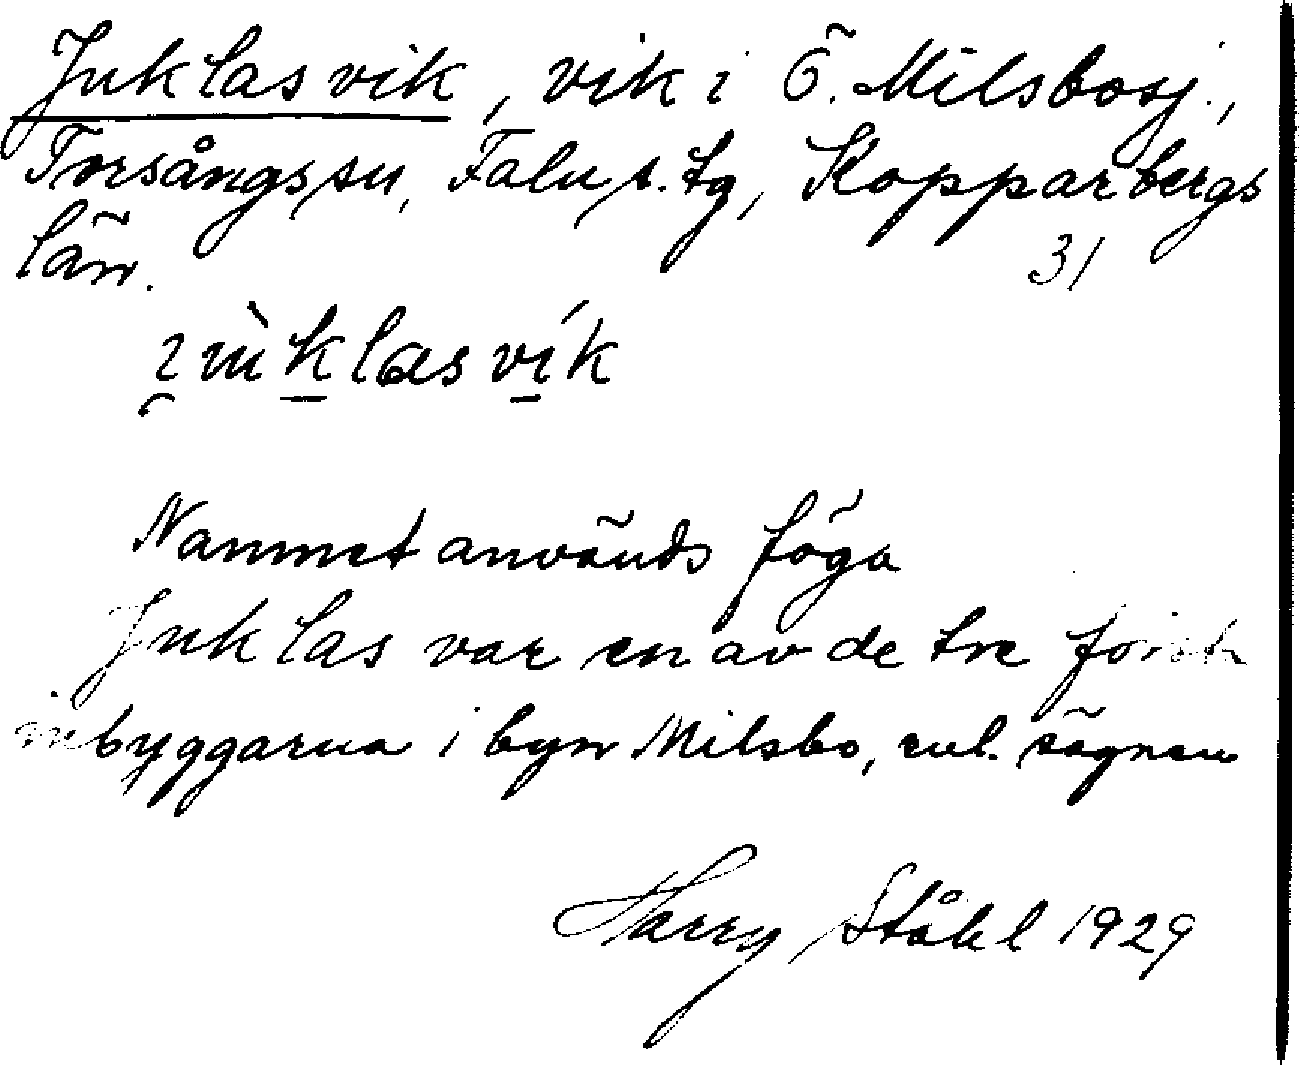 Juklasvik, vik i Ö. Milsbosj.,
Torsångs sn, Falu s. tg, Kopparbergs
län.
31
Namnet används föga
Juklas var en av de tre första
inbyggarna i byn Milsbo, enl. sägnen
Harry Ståhl 1929